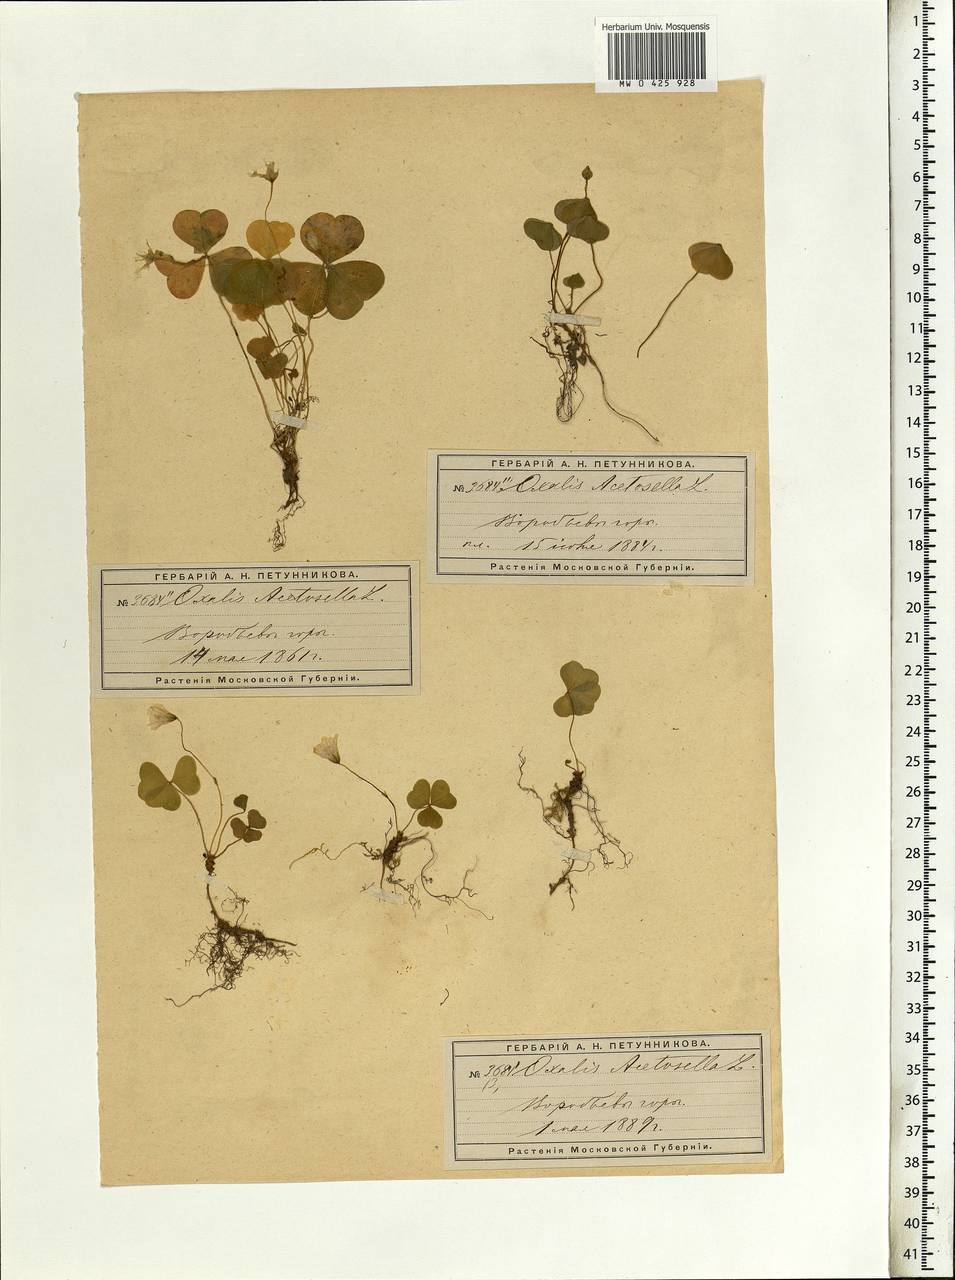 Herbarium Univ. Mosquensis
MW 0 425 928
ГЕРБАРІЙ А. Н. ПЕТУННИКОВА.
№ Oxalis Acetosella L.
Воробьевы горы.
пл. 15 іюне 1884 г.
Растенія Московской Губерніи.
ГЕРБАРІЙ А. Н. ПЕТУННИКОВА.
№ Oxalis Acetosella L.
Воробьевы горы.
14 мае 1861 г.
Растенія Московской Губерніи.
ГЕРБАРІЙ А. Н. ПЕТУННИКОВА.
№ Oxalis Acetosella L.
Воробьевы горы.
1 мае 1889 г.
Растенія Московской Губерніи.
1
2
3
4
5
6
7
8
9
10
11
12
13
14
15
16
17
18
19
20
21
22
23
24
25
26
27
28
29
30
31
32
33
34
35
36
37
38
39
40
41